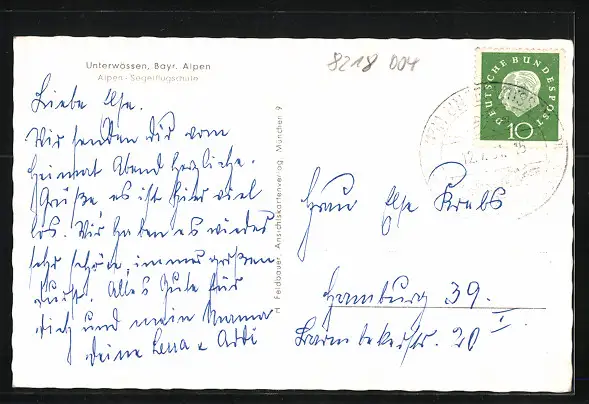 Unterwössen, Bayr. Alpen
Alpen-Segelflugschule
8218 004
DEUTSCHE BUNDESPOST
10
Liebe Ilse.
Wir senden dir vom
Heimat Abend herzliche
Grüße es ist hier viel
los. Wir haben es wieder
sehr schön, immer großen
Durst. Alles Gute für
dich und mein Mama
deine Lena u Addi
H. Feldbauer, Ansichtskartenverlag, München 9
Frau Ilse Krebs
Hamburg 39.
Barmbekerstr. 20 I.